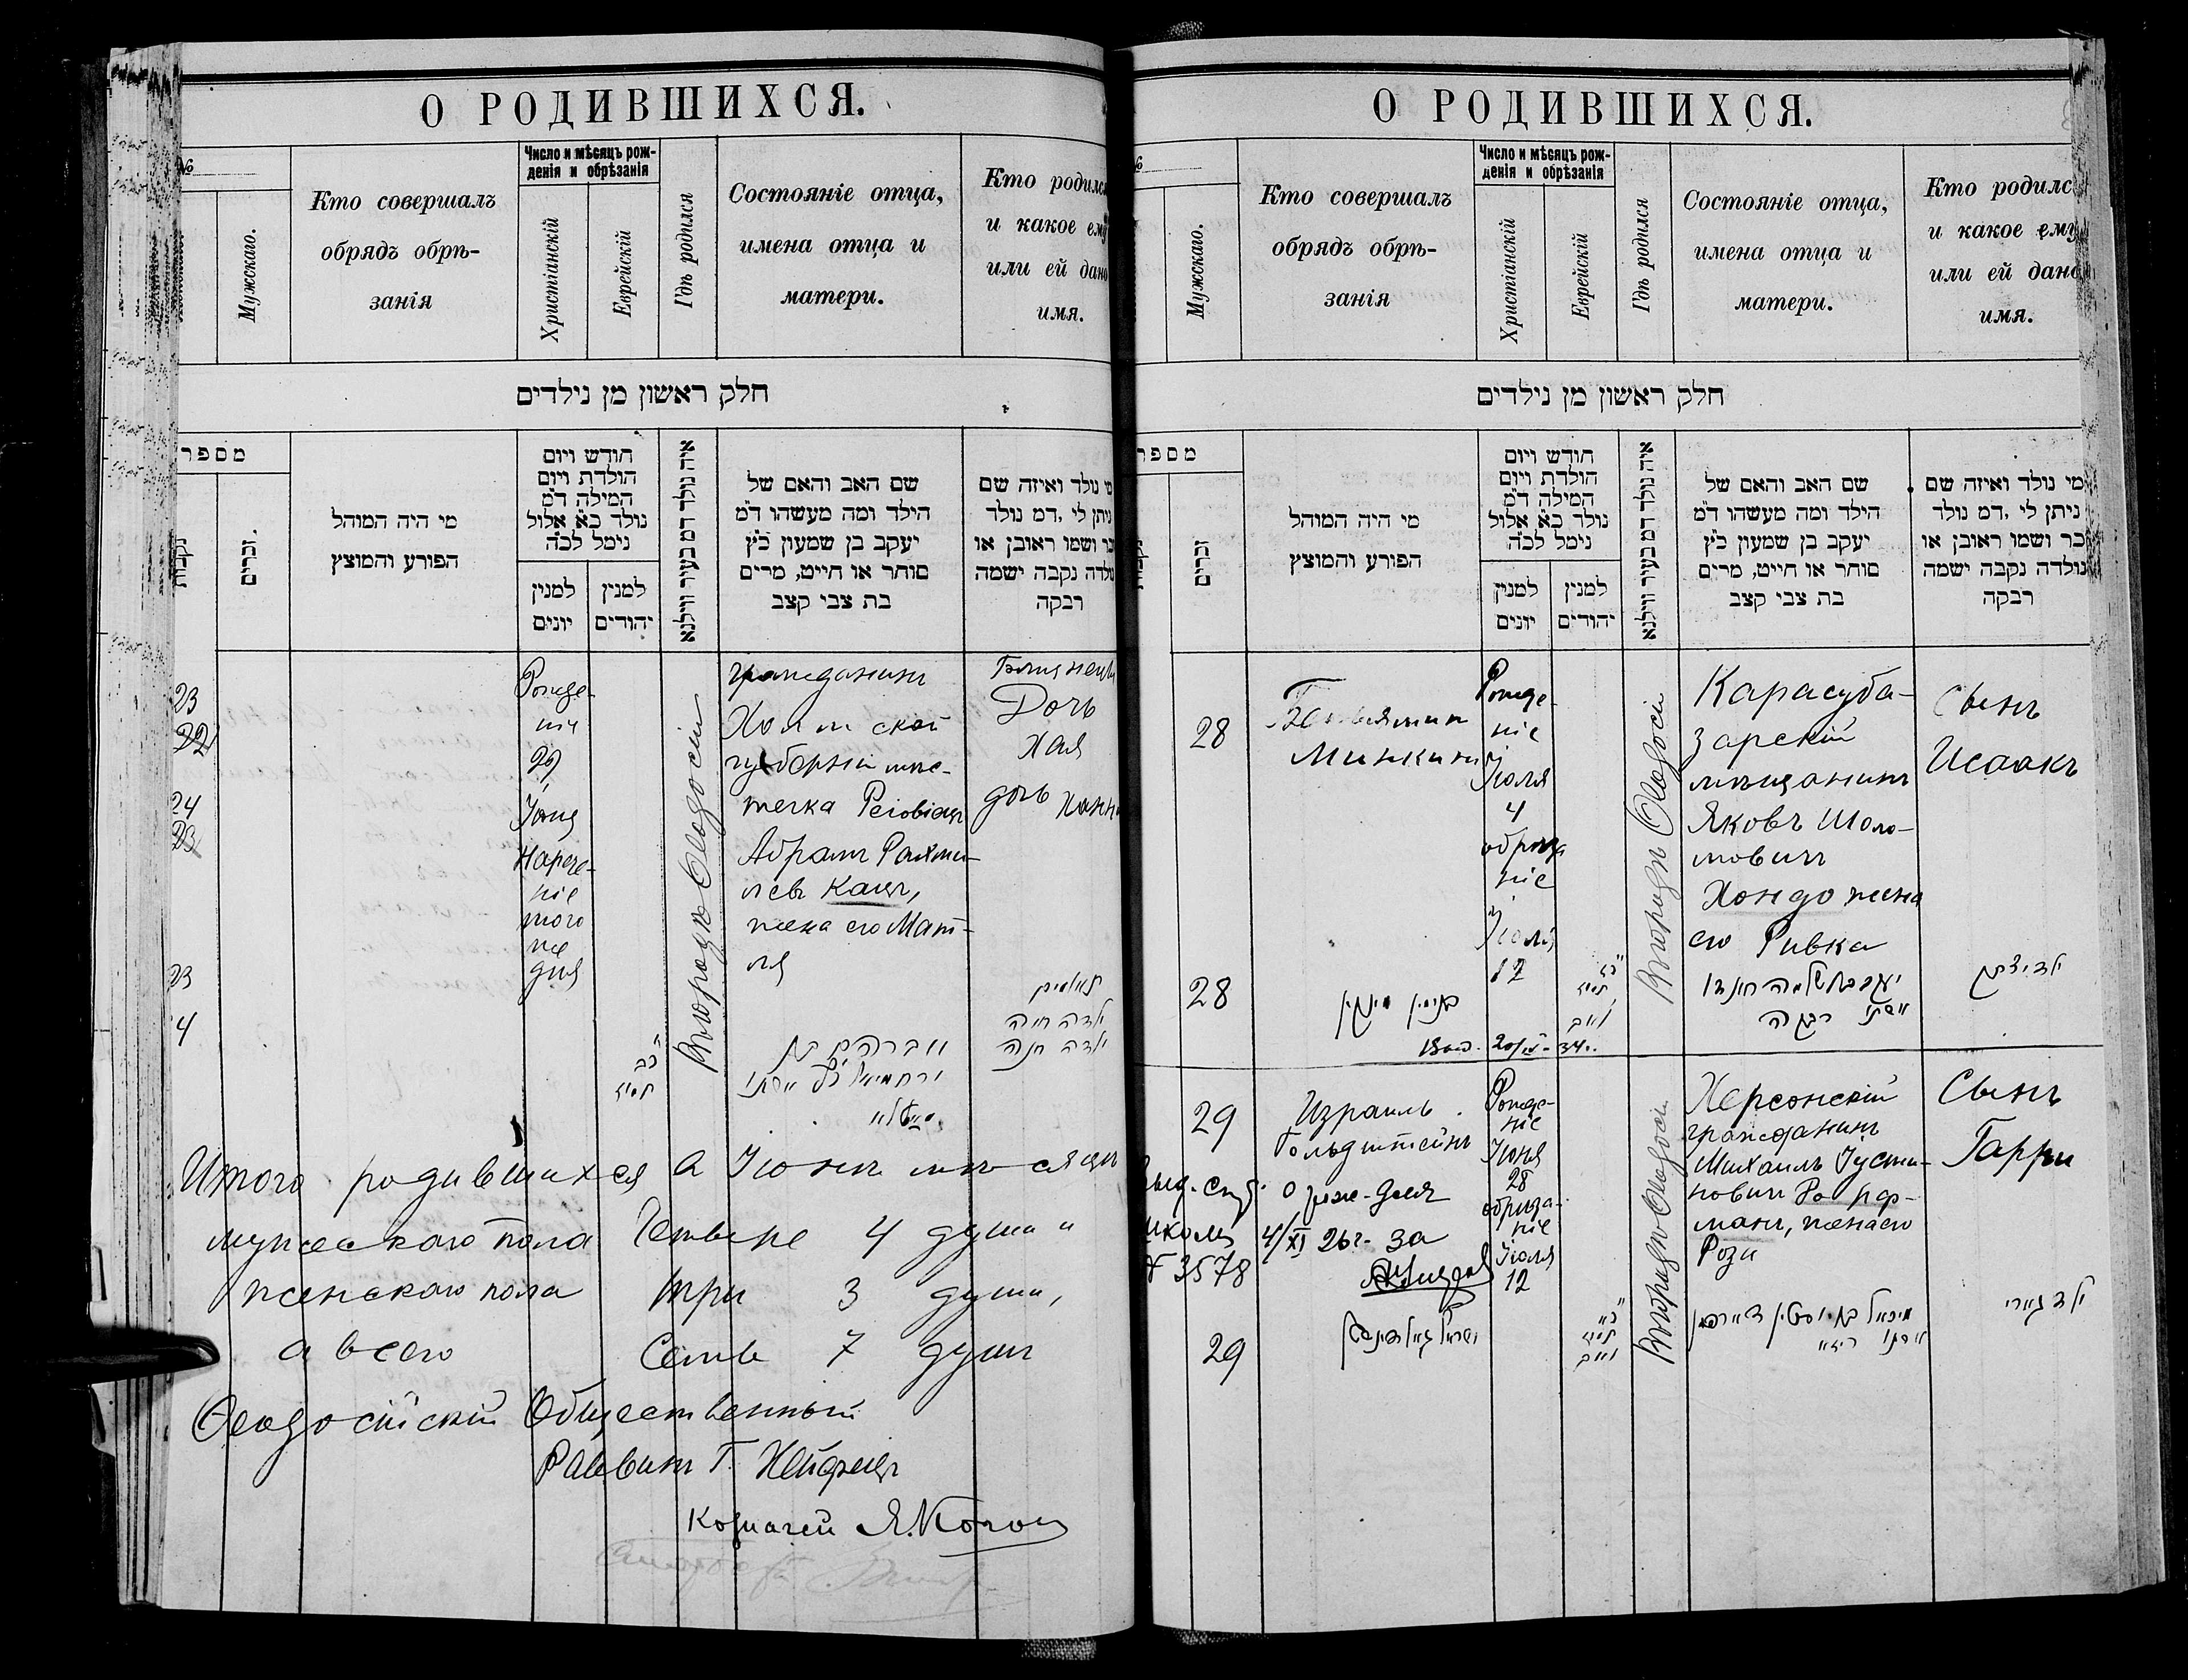 О РОДИВШИХСЯ.
№
Мужскаго.
Кто совершалъ
обрядъ обрѣ-
занія
Число и мѣсяцъ рож-
денія и обрѣзанія
Христіанскій
Еврейскій
Гдѣ родился
Состояніе отца,
имена отца и
матери.
Кто родилс
и какое ему
или ей дано
имя.
חלק ראשון מן נילדים
מספר
זכרים
מי היה המוהל
הפורע והמוצץ
חודש ויום
הולדת ויום
המילה ד״מ
נולד כ״א אלול
נימל לכ״ה
למנין
יונים
למנין
יהודים
איה נולד דמ בעיר ווילנא
שם האב והאם של
הילד ומה מעשהו ד״מ
יעקב בן שמעון כ״ץ
סוחר או חייט, מרים
בת צבי קצב
מי נולד ואיזה שם
ניתן לי ,דמ נולד
כר ושמו ראובן או
נולדה נקבה ישמה
רבקה
23
22
24
23
Рожде-
ніе
29
Іюня
Нарече-
ніе
того
же
дня
Въ городѣ Ѳеодосіи
гражданинъ
Холмской
губерніи мѣс-
течка
Абрамъ Рахми-
левъ Кацъ,
жена его Мат-
ля
Близнецы
Дочь
Хая
дочь Ханна
23
4
כב
תמוז
תאומים
ילדה חיה
ילדה חנה
Итого родившихся въ Іюнѣ мѣсяцѣ
мужескаго пола Четыре 4 души
женскаго пола три 3 души,
а всего Семь 7 душъ
Ѳеодосійскій Общественный
Раввинъ Г. Нейфелд
Казначей Я. Коган
О РОДИВШИХСЯ.
Мужскаго.
Кто совершалъ
обрядъ обрѣ-
занія
Число и мѣсяцъ рож-
денія и обрѣзанія
Христіанскій
Еврейскій
Гдѣ родился
Состояніе отца,
имена отца и
матери.
Кто родилс
и какое ему
или ей дано
имя.
חלק ראשון מן נילדים
מספר
זכרים
מי היה המוהל
הפורע והמוצץ
חודש ויום
הולדת ויום
המילה ד״מ
נולד כ״א אלול
נימל לכ״ה
למנין
יונים
למנין
יהודים
איה נולד דמ בעיר ווילנא
שם האב והאם של
הילד ומה מעשהו ד״מ
יעקב בן שמעון כ״ץ
סוחר או חייט, מרים
בת צבי קצב
מי נולד ואיזה שם
ניתן לי ,דמ נולד
כר ושמו ראובן או
נולדה נקבה ישמה
רבקה
28
Беньяминъ
Минкинъ
Рожде-
ніе
Іюля
4
обрѣза
ніе
Іюля
12
Въ городѣ Ѳеодосіи
Карасуба-
зарскій
мѣщанинъ
Яковъ Шоло-
мовичъ
Хондо жена
его Ривка
Сынъ
Исаакъ
28
בנימין מינקין
תמוז
יעקב בן שלמה חונדו
אשתו רבקה
ילד יצחק
29
Израиль
Гольдштейнъ
Рожде-
ніе
Іюня
28
обрѣза-
ніе
Іюля
12
Въ городѣ Ѳеодосіи
Херсонскій
гражданинъ
Михаилъ Іусти-
новичъ
жена его
Рози
Сынъ
Гарри
о рож. для
школы 4/XI 26г. за
№ 3578
29
ישראל גאלדשטיין
תמוז
אשתו ריזא
ילד גארי